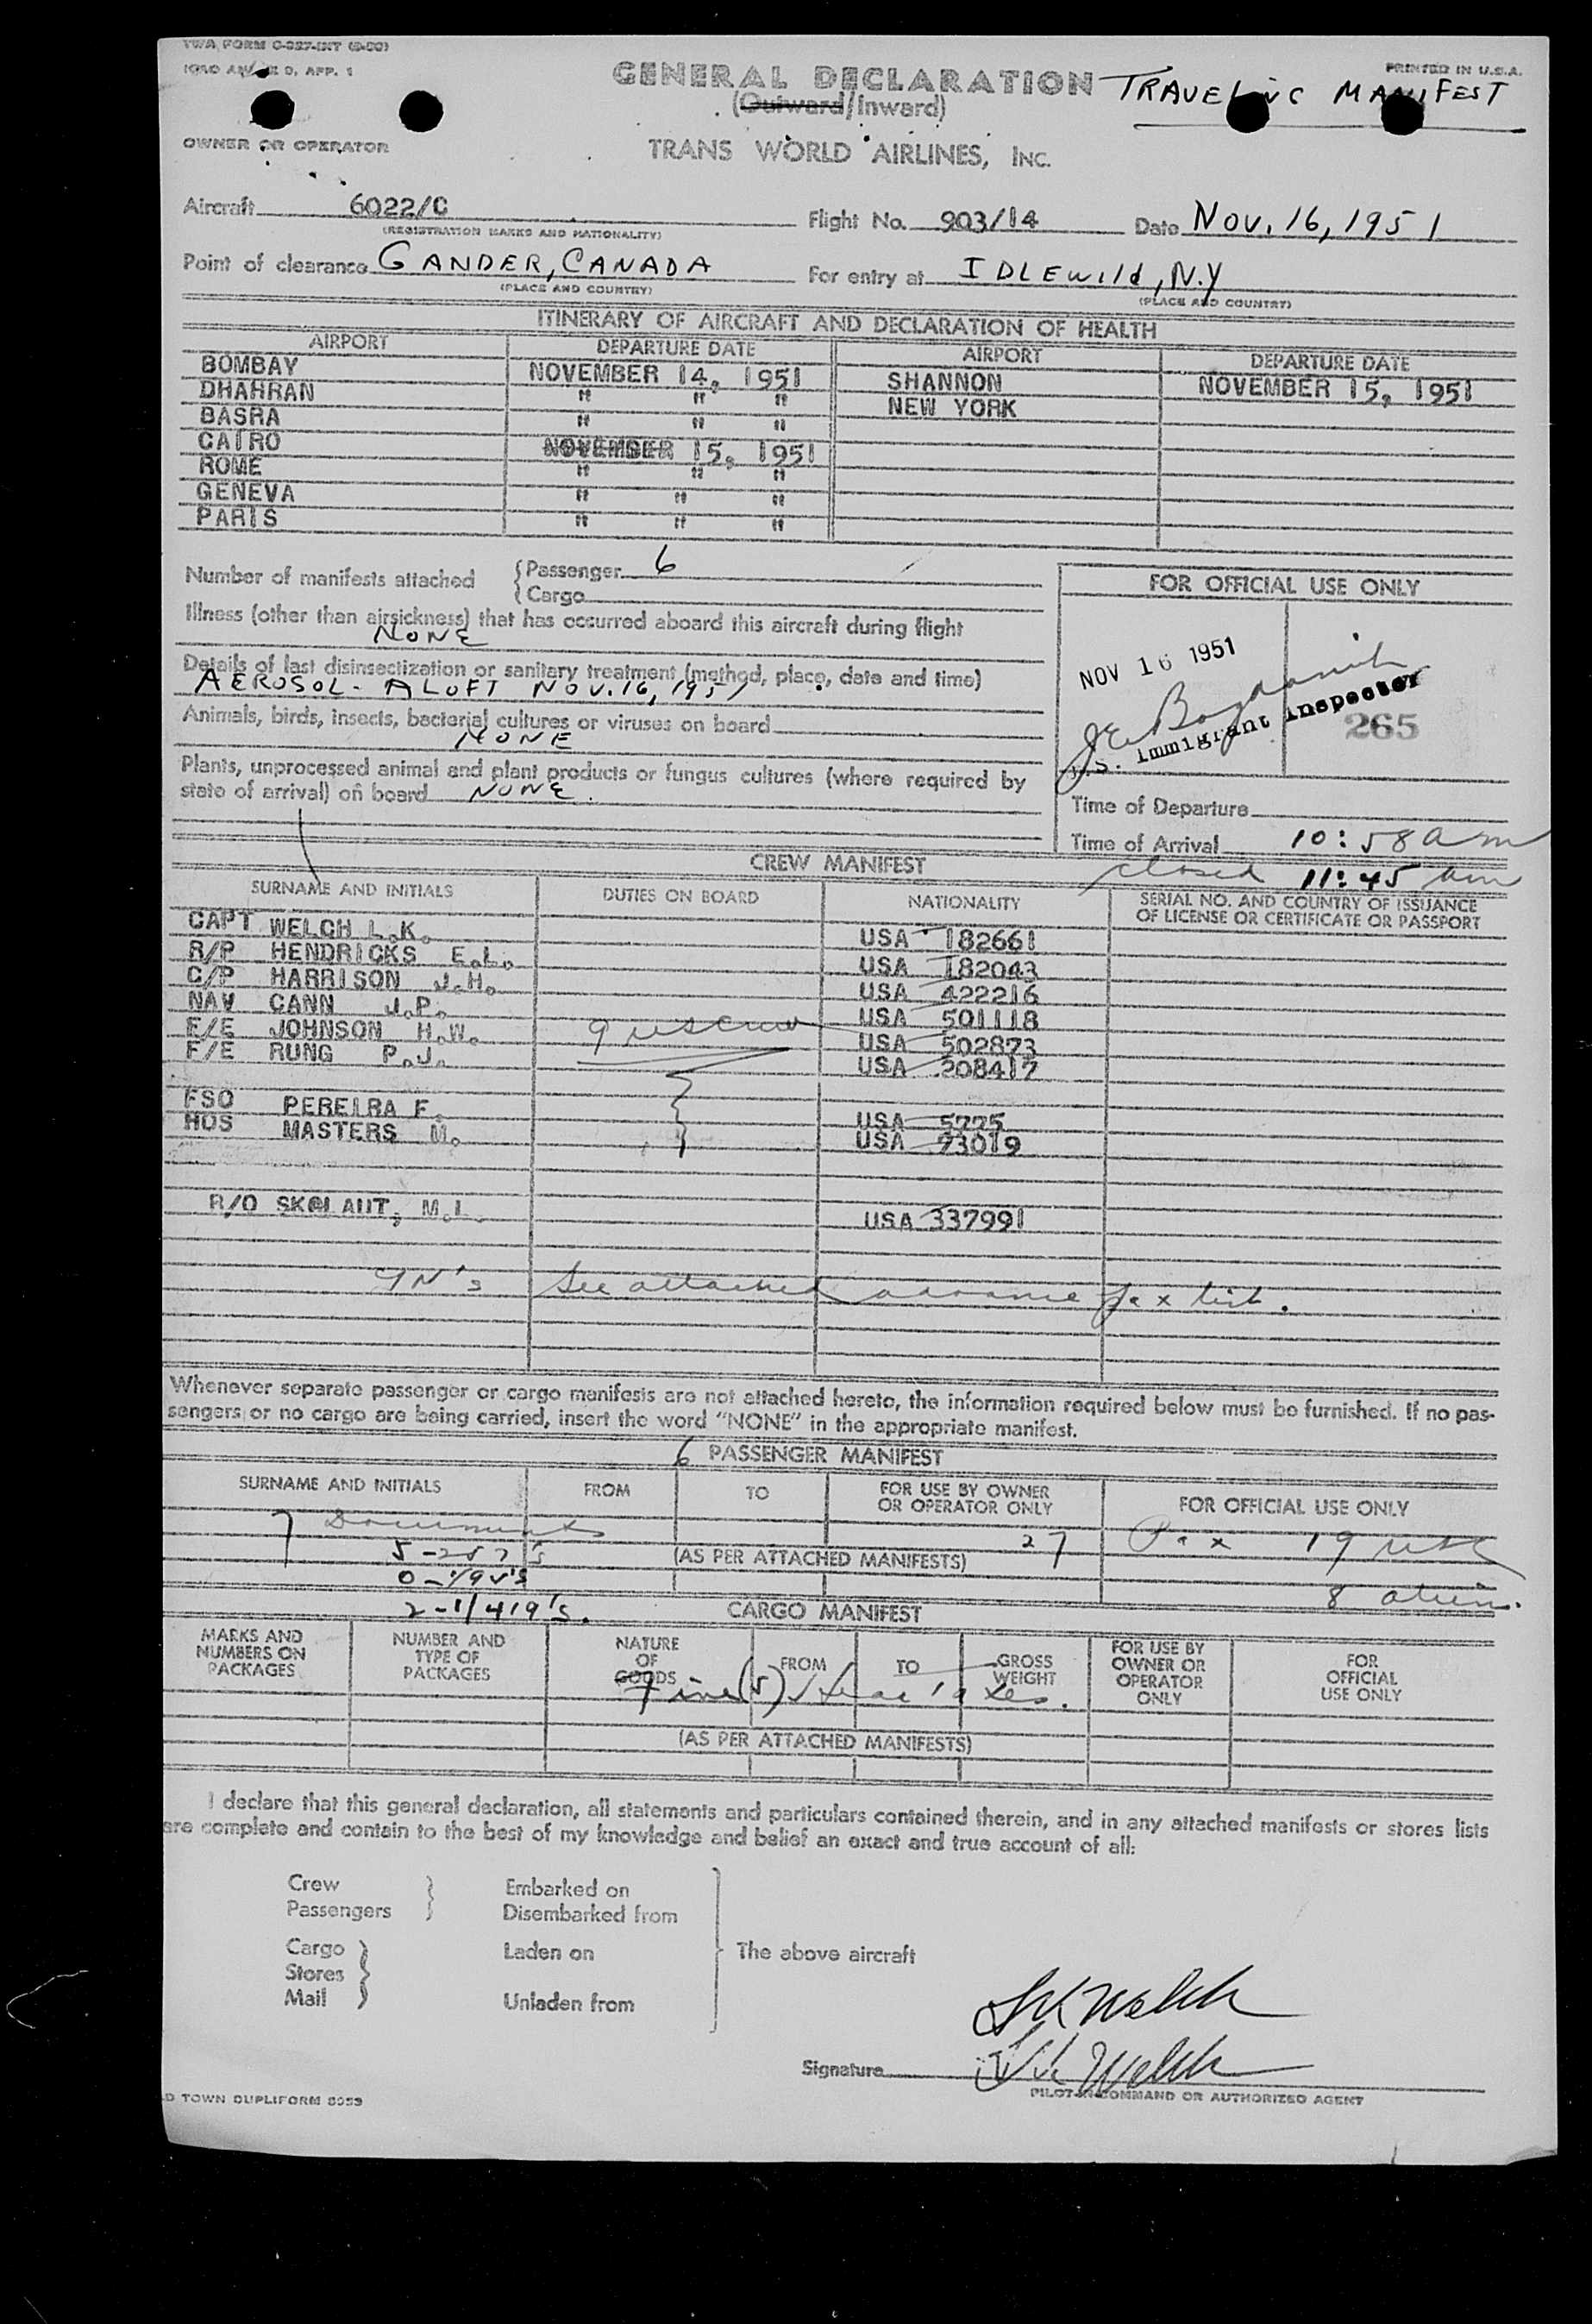 TWA FORM C-927-INT
PRINTED IN U.S.A.
GENERAL DECLARATION
TRAVELING MANIFEST
(Outward/Inward)
OWNER OR OPERATOR
TRANS WORLD AIRLINES, INC.
Aircraft 6022/C Flight No. 903/14 Date Nov. 16, 1951
(REGISTRATION MARKS AND NATIONALITY)
Point of clearance GANDER, CANADA For entry at IDLEWild, N.Y
(PLACE AND COUNTRY) (PLACE AND COUNTRY)
ITINERARY OF AIRCRAFT AND DECLARATION OF HEALTH
AIRPORT DEPARTURE DATE AIRPORT DEPARTURE DATE
BOMBAY NOVEMBER 14, 1951 SHANNON NOVEMBER 15, 1951
DHAHRAN " " " NEW YORK
BASRA " " "
CAIRO NOVEMBER 15, 1951
ROME " " "
GENEVA " " "
PARIS " " "
Number of manifests attached {Passenger 6
{Cargo
Illness (other than airsickness) that has occurred aboard this aircraft during flight
NONE
Details of last disinsectization or sanitary treatment (method, place, date and time)
AEROSOL - ALOFT NOV. 16, 1951
Animals, birds, insects, bacterial cultures or viruses on board
NONE
Plants, unprocessed animal and plant products or fungus cultures (where required by
state of arrival) on board NONE.
FOR OFFICIAL USE ONLY
NOV 16 1951
U.S. Immigrant Inspector
265
Time of Departure
Time of Arrival 10:58 am
closed 11:45 am
CREW MANIFEST
SURNAME AND INITIALS DUTIES ON BOARD NATIONALITY SERIAL NO. AND COUNTRY OF ISSUANCE
OF LICENSE OR CERTIFICATE OR PASSPORT
CAPT WELCH L.K. USA 182661
R/P HENDRICKS E.L. USA 182043
C/P HARRISON J.H. USA 422216
NAV CANN J.P. USA 501118
F/E JOHNSON H.W. 9 usc crew USA 502873
F/E RUNG P.J. USA 208417
FSO PEREIRA F. USA 5775
HOS MASTERS M. USA 73019
R/O SKOLAUT, M.L. USA 337991
See attached advance pax list.
Whenever separate passenger or cargo manifests are not attached hereto, the information required below must be furnished. If no pas-
sengers or no cargo are being carried, insert the word "NONE" in the appropriate manifest.
6 PASSENGER MANIFEST
SURNAME AND INITIALS FROM TO FOR USE BY OWNER
OR OPERATOR ONLY FOR OFFICIAL USE ONLY
7 Documents 27 Pax 19 usc
5-257's (AS PER ATTACHED MANIFESTS)
8 alien.
2-1/419's.
CARGO MANIFEST
MARKS AND
NUMBERS ON
PACKAGES
NUMBER AND
TYPE OF
PACKAGES
NATURE
OF
GOODS
FROM
TO
GROSS
WEIGHT
FOR USE BY
OWNER OR
OPERATOR
ONLY
FOR
OFFICIAL
USE ONLY
(AS PER ATTACHED MANIFESTS)
I declare that this general declaration, all statements and particulars contained therein, and in any attached manifests or stores lists
are complete and contain to the best of my knowledge and belief an exact and true account of all:
Crew Embarked on
Passengers Disembarked from
Cargo Laden on The above aircraft
Stores
Mail Unladen from
LK Welch
Signature LK Welch
PILOT IN COMMAND OR AUTHORIZED AGENT
D TOWN DUPLIFORM 8059